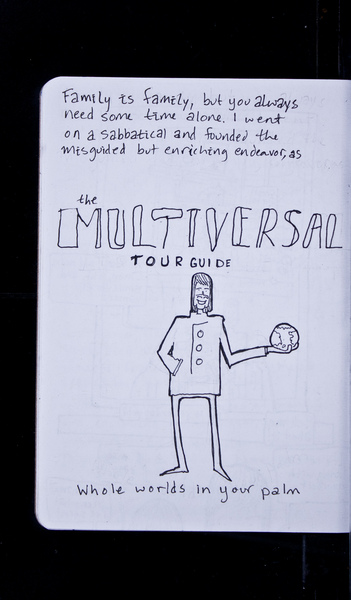 Family is family, but you always
need some time alone. I went
on a sabbatical and founded the
misguided but enriching endeavor, as
the
MULTIVERSAL
TOUR GUIDE
Whole worlds in your palm